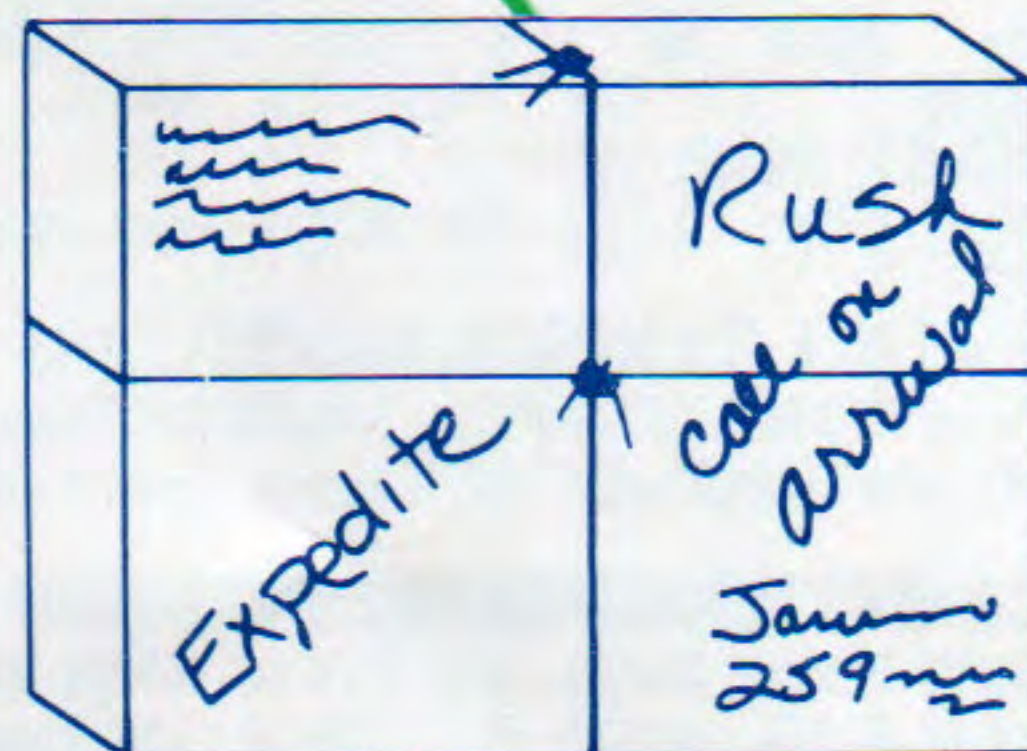 Rush
Call on
arrival
Expedite
259